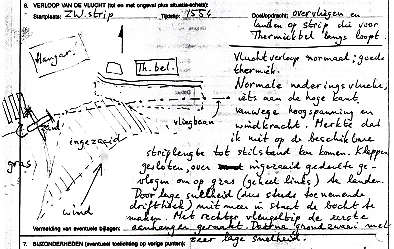 6. VERLOOP VAN DE VLUCHT (tot en met ongeval plus situatieschets):
Startplaats: ZW. strip Tijdstip: 1554 Doel/opdracht: overvliegen en
landen op strip die voor
Thermiekbel langs loopt.
Hangar
Th. bel.
vliegbaan
wind
ingezaaid
gras
wind
Vluchtverloop normaal; goede
thermiek.
Normale naderings vlucht,
iets aan de hoge kant
vanwege hoogspanning en
windkracht. Merkte dat
ik niet op de beschikbare
striplengte tot stilstand kon komen. Kleppen
gesloten, over ingezaaid gedeelte ge-
vlogen om op gras (geheel links) te landen
Door lage snelheid (dus steeds toenemende
drifthoek) niet meer in staat de bocht te
maken. Met rechter vleugeltip de eerste
Vermelding van eventuele bijlagen: aanhanger geraakt. Daarna grondzwaai met
zeer lage snelheid.
7. BIJZONDERHEDEN (eventueel toelichting op vorige punten):